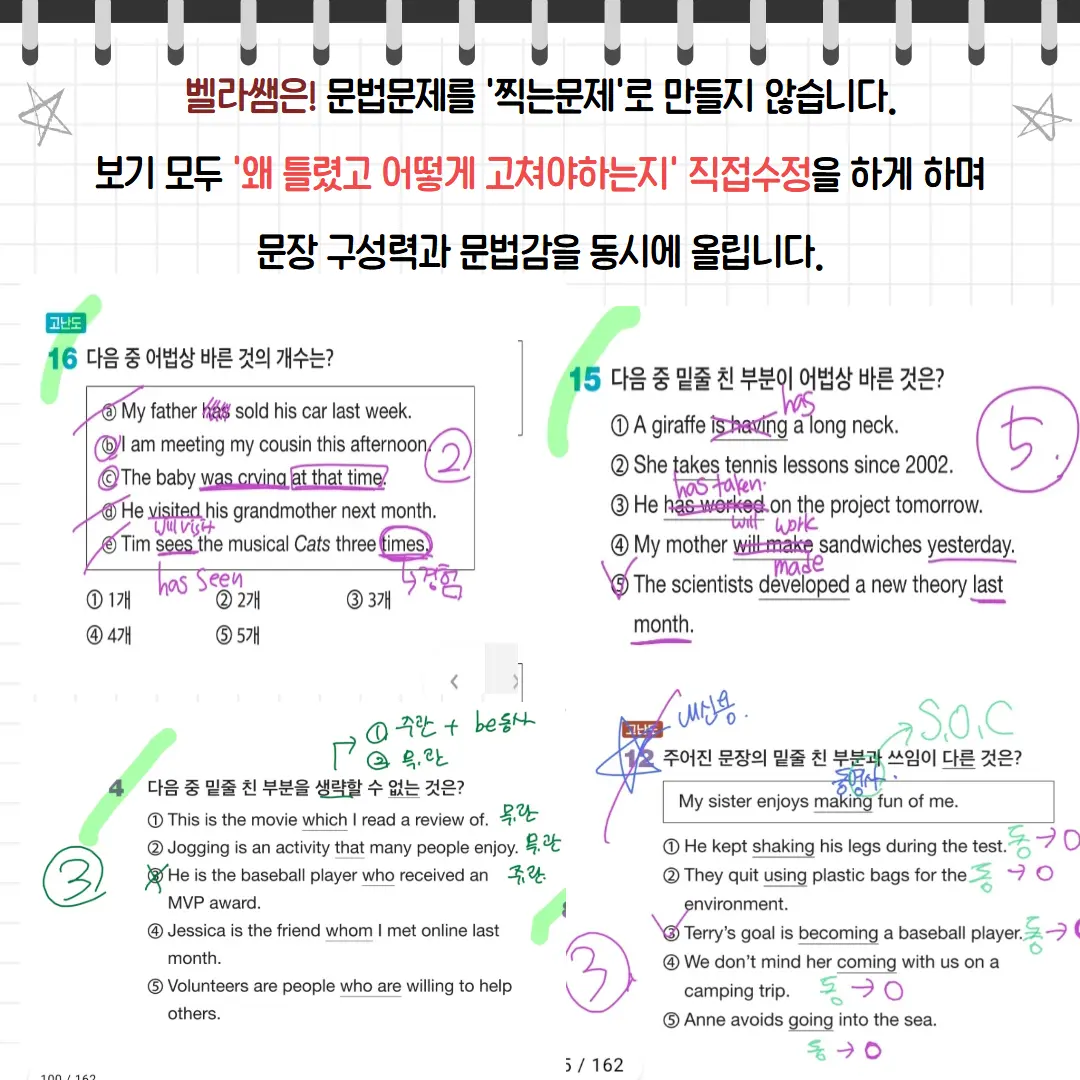 벨라쌤은! 문법문제를 '찍는문제'로 만들지 않습니다.
보기 모두 '왜 틀렸고 어떻게 고쳐야하는지' 직접수정을 하게 하며
문장 구성력과 문법감을 동시에 올립니다.
고난도
16 다음 중 어법상 바른 것의 개수는?
ⓐ My father has sold his car last week.
ⓑ I am meeting my cousin this afternoon.
②
ⓒ The baby was crying at that time.
ⓓ He visited his grandmother next month.
will visit
ⓔ Tim sees the musical Cats three times.
has seen
→ 경험
① 1개 ② 2개 ③ 3개
④ 4개 ⑤ 5개
15 다음 중 밑줄 친 부분이 어법상 바른 것은?
has
① A giraffe is having a long neck.
5.
② She takes tennis lessons since 2002.
has taken.
③ He has worked on the project tomorrow.
will work
④ My mother will make sandwiches yesterday.
made
⑤ The scientists developed a new theory last
month.
① 주관 + be동사
② 목.관
4 다음 중 밑줄 친 부분을 생략할 수 없는 것은?
① This is the movie which I read a review of. 목.관
② Jogging is an activity that many people enjoy. 목.관
③
③ He is the baseball player who received an 주.관
MVP award.
④ Jessica is the friend whom I met online last
month.
⑤ Volunteers are people who are willing to help
others.
100 / 162
고난도
→ S.O.C
12 주어진 문장의 밑줄 친 부분과 쓰임이 다른 것은?
동명사.
My sister enjoys making fun of me.
① He kept shaking his legs during the test. 동 → O
② They quit using plastic bags for the 동 → O
environment.
③ Terry's goal is becoming a baseball player. 동 →
③
④ We don't mind her coming with us on a
camping trip. 동 → O
⑤ Anne avoids going into the sea.
동 → O
5 / 162